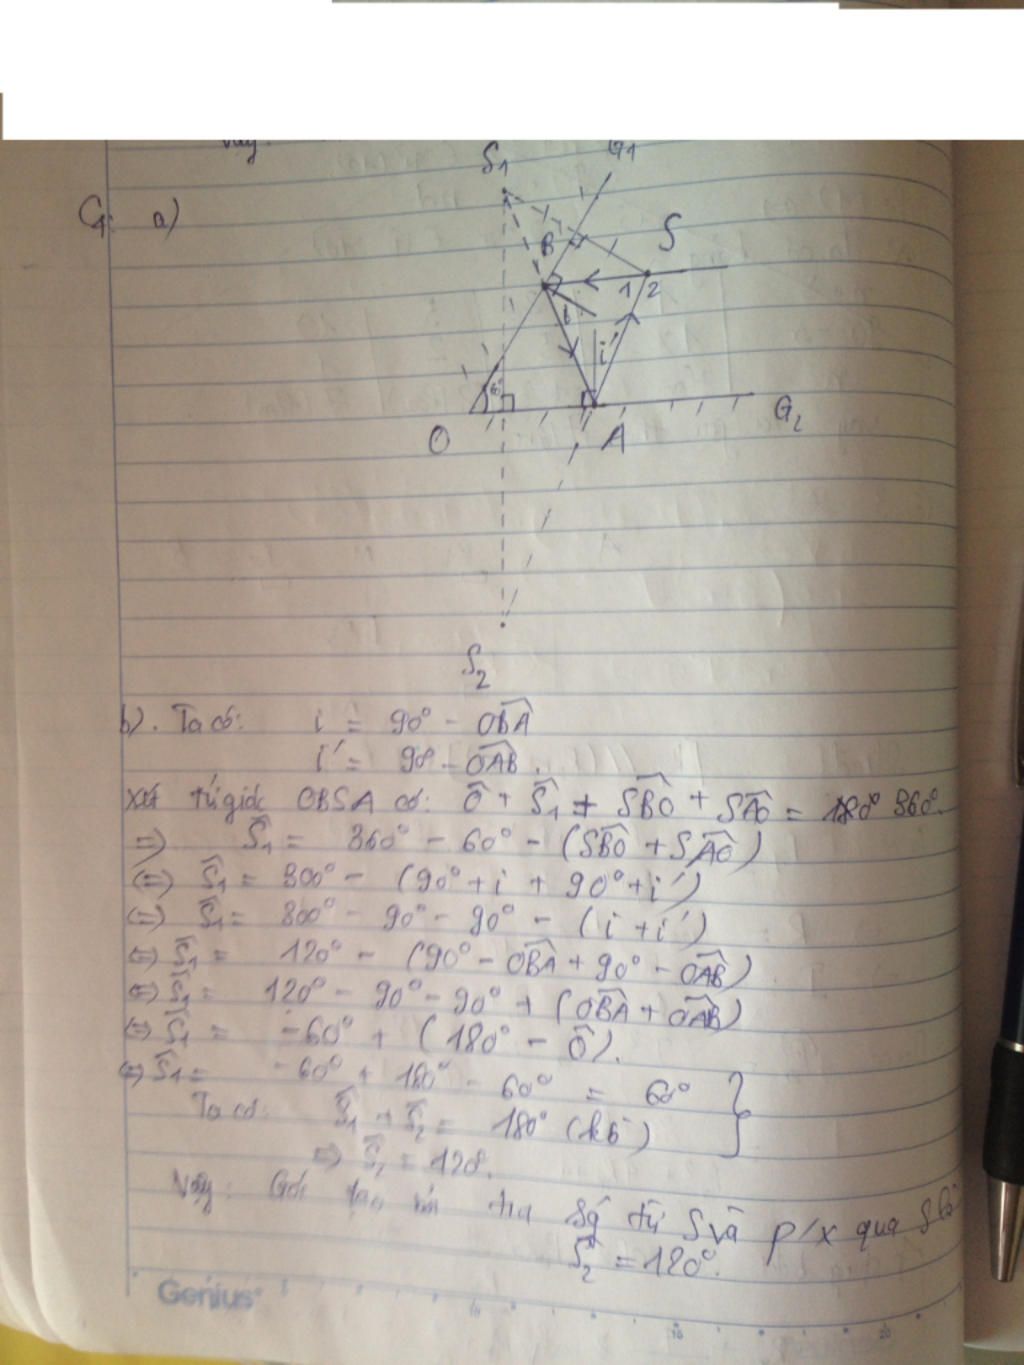 S1 G1
C4: a)
B S
1 2
i i'
60°
O A G2
S2
b). Ta có: i = 90° - OBA
i' = 90° - OAB.
Xét tứ giác OBSA có: O + S1 + SBO + SAO = 180° 360°.
=> S1 = 360° - 60° - (SBO + SAO)
(=) S1 = 300° - (90° + i + 90° + i')
(=) S1 = 300° - 90° - 90° - (i + i')
(=) S1 = 120° - (90° - OBA + 90° - OAB)
(=) S1 = 120° - 90° - 90° + (OBA + OAB)
(=) S1 = -60° + (180° - O).
(=) S1 = -60° + 180° - 60° = 60°
Ta có: S1 + S2 = 180° (kb)
=> S2 = 120°.
Vậy: Góc tạo bởi tia từ S và p/x qua S là
S2 = 120°.
Genius